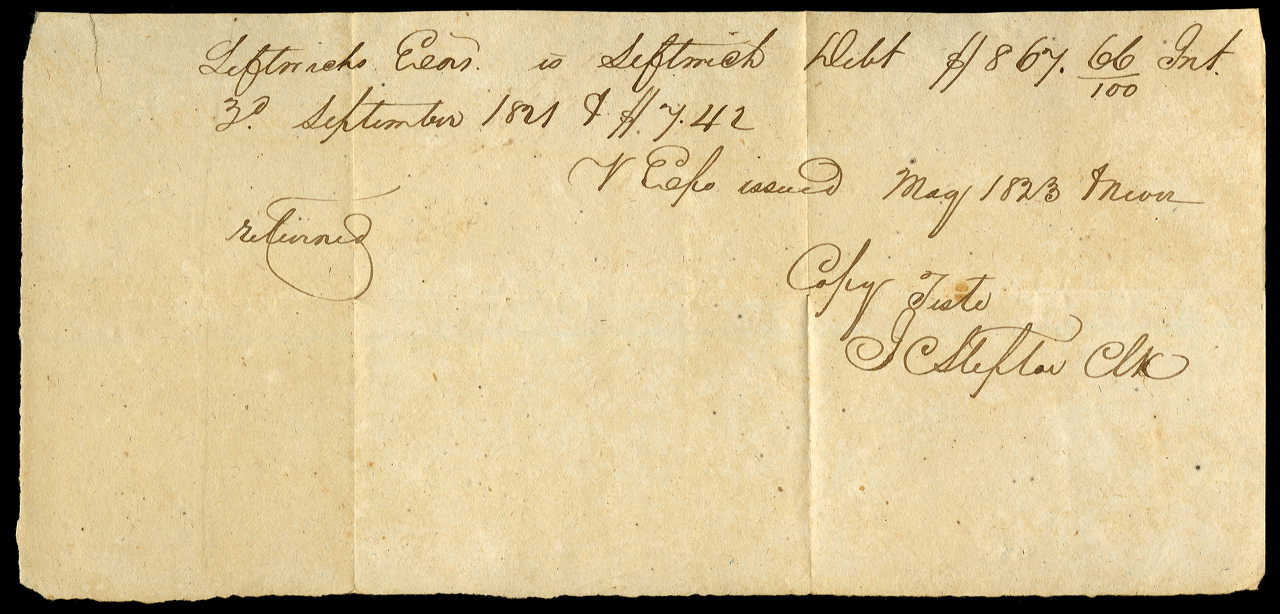 Leftwichs Exors. vs Leftwich Debt $867. 66/100 Int.
3d. September 1821 & $7.42
Exps issued May 1823 & never
returned
Copy Teste
J C Steptoe Clk